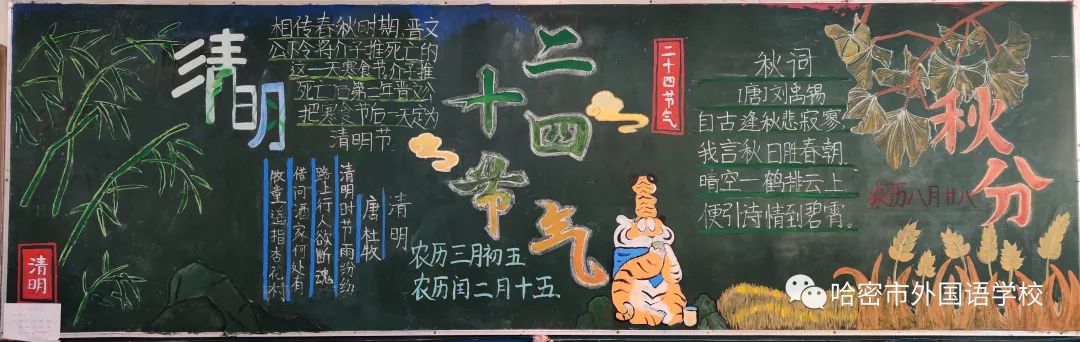 清明
相传春秋时期,晋文
公下令将介子推死亡的
这一天寒食节介子推
死亡第二年晋文公
把寒食节后一天定为
清明节
清明
唐 杜牧
清明时节雨纷纷
路上行人欲断魂
借问酒家何处有
牧童遥指杏花村
清明
二十四节气
农历三月初五
农历闰二月十五
二十四节气
秋词
[唐]刘禹锡
自古逢秋悲寂寥,
我言秋日胜春朝。
晴空一鹤排云上,
便引诗情到碧霄。
秋分
农历八月廿八
哈密市外国语学校